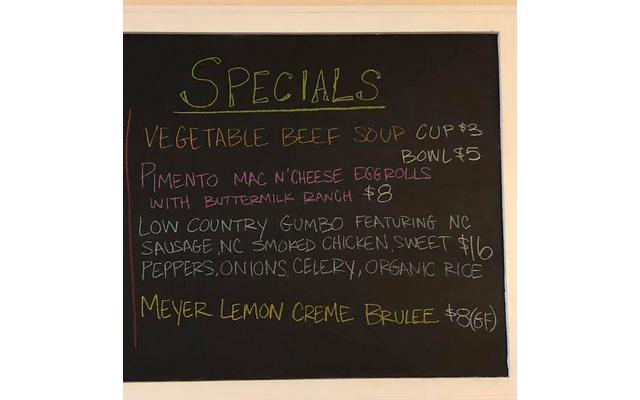 SPECIALS
VEGETABLE BEEF SOUP CUP $3
BOWL $5
PIMENTO MAC N' CHEESE EGGROLLS
WITH BUTTERMILK RANCH $8
LOW COUNTRY GUMBO FEATURING NC
SAUSAGE, NC SMOKED CHICKEN, SWEET $16
PEPPERS, ONIONS, CELERY, ORGANIC RICE
MEYER LEMON CREME BRULEE $8 (GF)